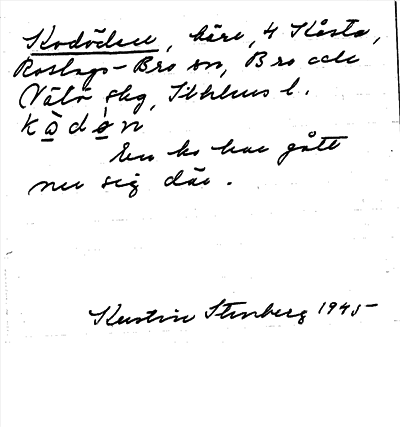 Kodöden, kärr, 4 Kåsta,
Roslags-Bro sn, Bro och
Vätö skg, Sthlms l.
kòdø̀n
En ko har gått
ner sig där.
Kerstin Stenberg 1945